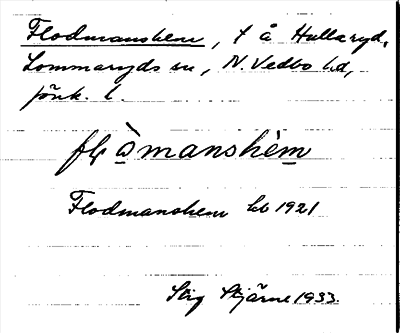 Flodmanshem, t å Hullaryd,
Lommaryds sn, N. Vedbo hd,
jönk. l.
manshèm
Flodmanshem kb 1921
Stig Stjärne 1933.